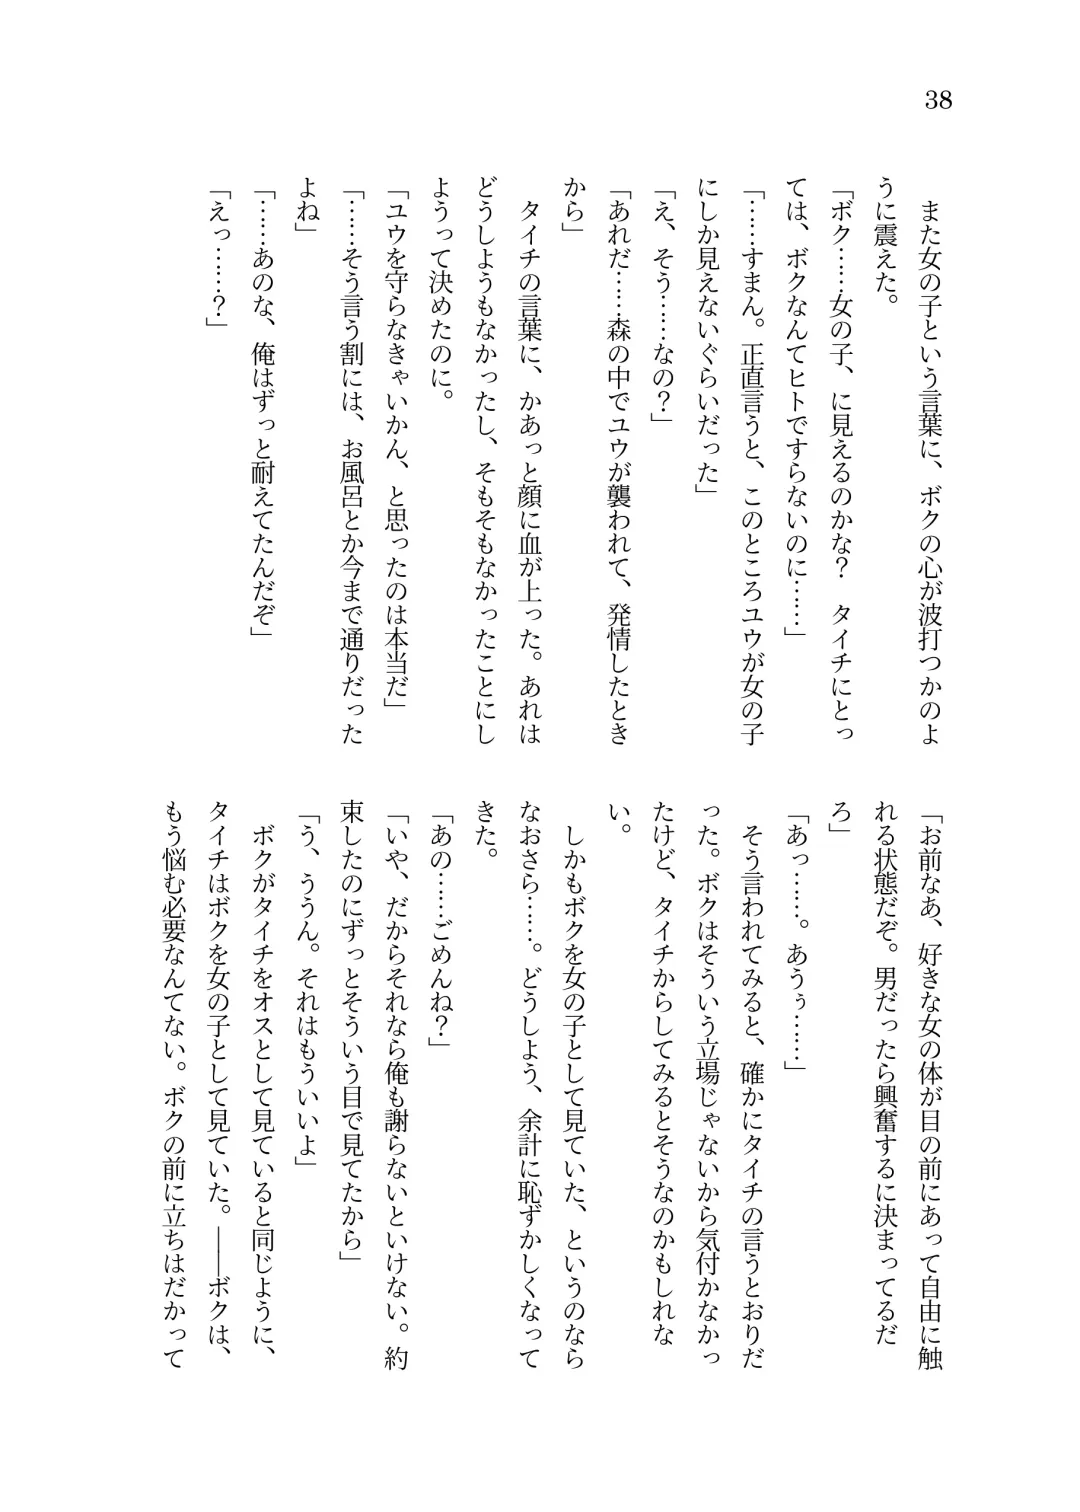 38
また女の子という言葉に、ボクの心が波打つかのよ
うに震えた。
「ボク……女の子、に見えるのかな？　タイチにとっ
ては、ボクなんてヒトですらないのに……」
「……すまん。正直言うと、このところユウが女の子
にしか見えないぐらいだった」
「え、そう……なの？」
「あれだ……森の中でユウが襲われて、発情したとき
から」
タイチの言葉に、かあっと顔に血が上った。あれは
どうしようもなかったし、そもそもなかったことにし
ようって決めたのに。
「ユウを守らなきゃいかん、と思ったのは本当だ」
「……そう言う割には、お風呂とか今まで通りだった
よね」
「……あのな、俺はずっと耐えてたんだぞ」
「えっ……？」
「お前なあ、好きな女の体が目の前にあって自由に触
れる状態だぞ。男だったら興奮するに決まってるだ
ろ」
「あっ……。あうぅ……」
そう言われてみると、確かにタイチの言うとおりだ
った。ボクはそういう立場じゃないから気付かなかっ
たけど、タイチからしてみるとそうなのかもしれな
い。
しかもボクを女の子として見ていた、というのなら
なおさら……。どうしよう、余計に恥ずかしくなって
きた。
「あの……ごめんね？」
「いや、だからそれなら俺も謝らないといけない。約
束したのにずっとそういう目で見てたから」
「う、ううん。それはもういいよ」
ボクがタイチをオスとして見ていると同じように、
タイチはボクを女の子として見ていた。――ボクは、
もう悩む必要なんてない。ボクの前に立ちはだかって